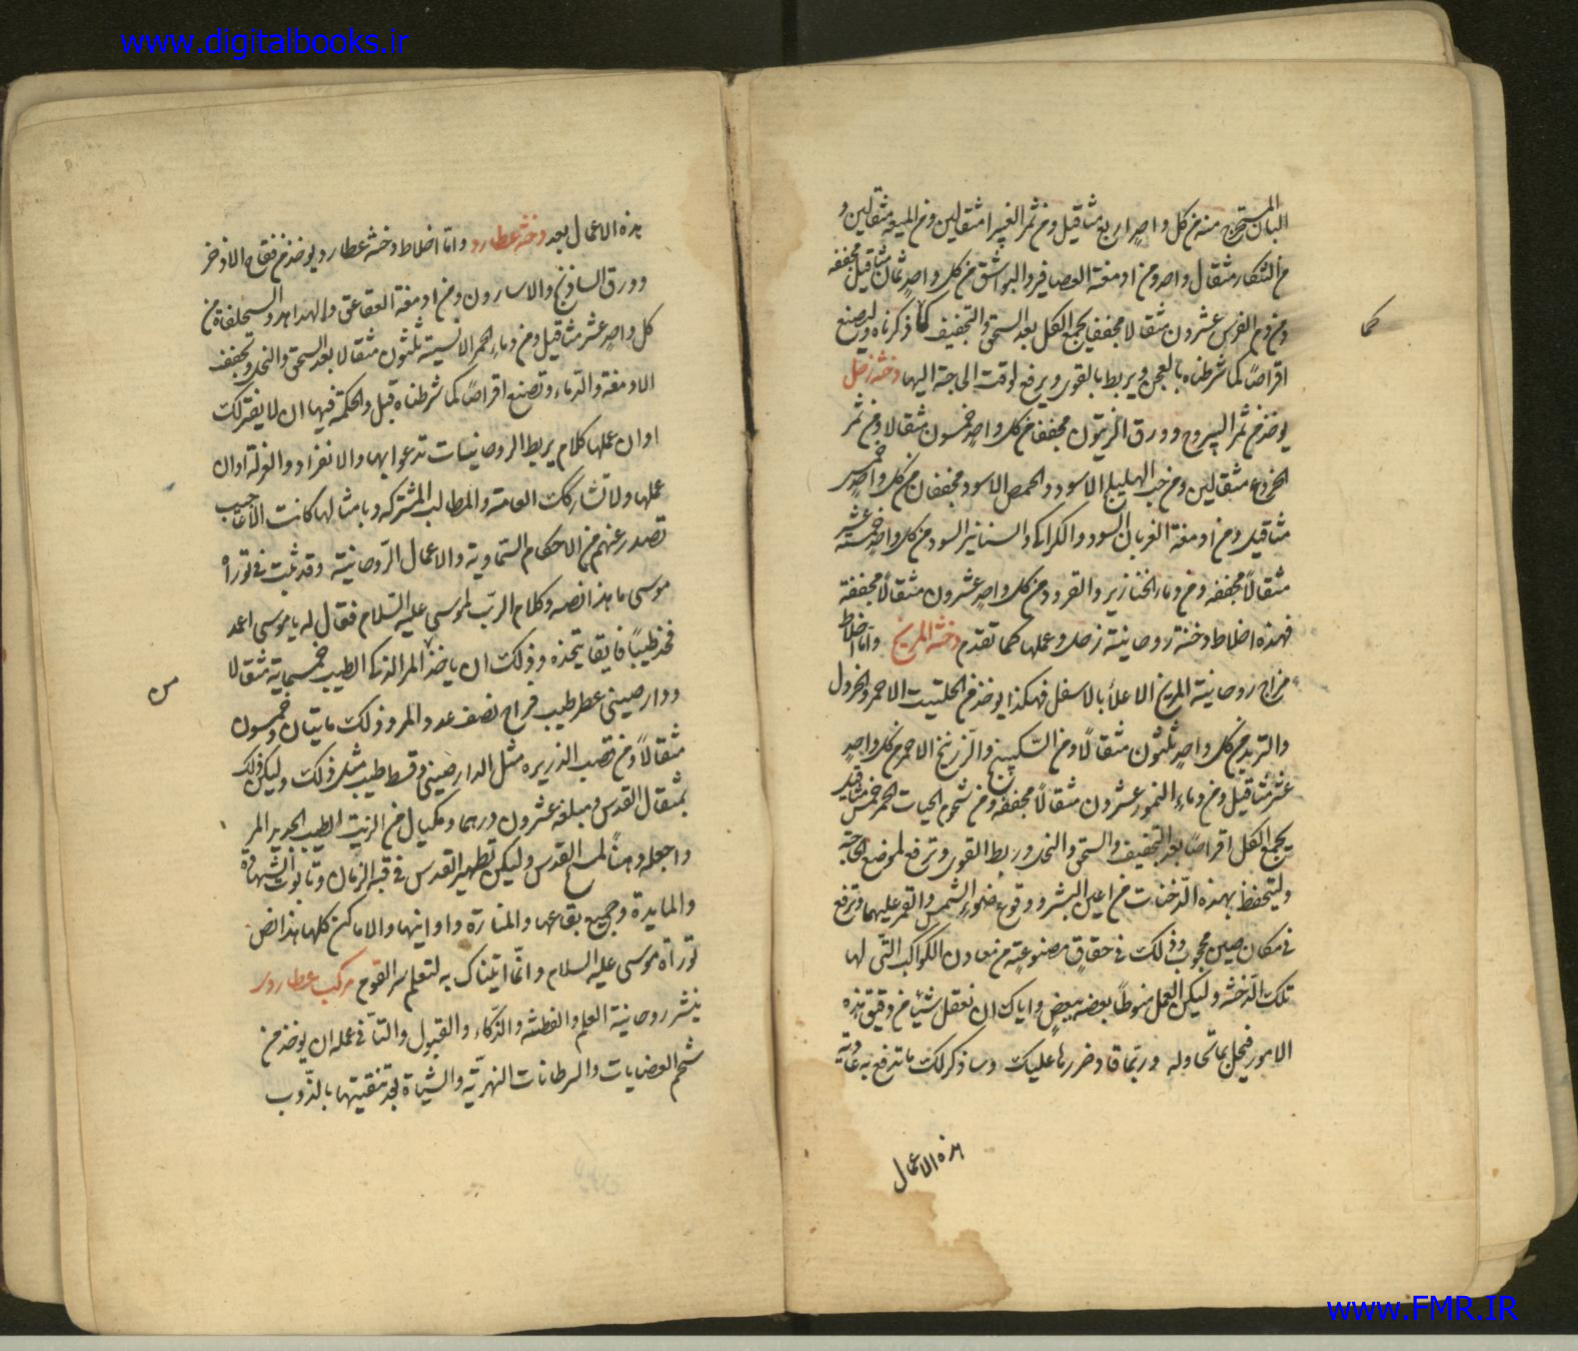 www.digitalbooks.ir
المستخرج
البان منه من كل واحد اربع مثاقيل ومن ثمر الغبيرا مثقالين ومن الميعة مثقالين و
من التنكار مثقال واحد ومن ادمغة العصافير والبواشق من كل واحد ثمان مثاقيل مجففه
ومن دم الفرس عشرون مثقالا مجففا يجمع الكل بعد السحق والتجفيف كما ذكرناه وليصنع
كما
اقراصًا كما شرطناه بالعجن ويربط بالقوى ويرفع لوقت الحاجة اليها دخنة زحل
يوخذ من ثمر اليبروح وورق الزيتون مجففا من كل واحد خمسون مثقالا ومن ثمر
الخروع مثقالين ومن حب الهليلج الاسود والحمص الاسود مجففان من كل واحد خمس
مثاقيل ومن ادمغة الغربان السود والكراكى والسنانير السود من كل واحد خمسة عشر
مثقالاً مجففه ومن دماء الخنازير والقرود من كل واحد عشرون مثقالاً مجففة
فهذه اخلاط دخنة روحانية زحل وعملها كما تقدم دخنة المريخ واما اخلاط
مزاج روحانية المريخ الاعلا بالاسفل فهكذا يوخذ من الحلتيت الاحمر والخردل
والتربد من كل واحد ثلثون مثقالاً ومن السكبينج والزرنيخ الاحمر من كل واحد
عشر مثاقيل ومن دماء النمور عشرون مثقالاً مجففه ومن شحوم الحيات الحمر خمس مثاقيل
يجمع الكل اقراصًا بعد التجفيف والسحق والنخل وربط القوى وترفع لموضع الحاجة
وليتحفظ بهذه الدخنات من اعين البشر ووقوع ضوء الشمس والقمر عليهما وترفع
فى مكان صين محجوب وذلك فى حقاق مصنوعة من معادن الكواكب التى لها
تلك الدخنة وليكن العمل منوطا بعضه ببعض واياك ان تغفل شيئا من دقيق هذه
الامور فيخل بما تحاوله وربما قاد ضررها عليك وساذكر لك ما تدفع به عادية
هذه الاعمال
هذه الاعمال بعد دخنة عطارد واما اخلاط دخنة عطارد يوخذ من فقاح الاذخر
وورق الساذج والاسارون ومن ادمغة العقاعق والهداهد والسحلفاة من
كل واحد عشر مثاقيل ومن دماء الحمر الانسية ثلثون مثقالا بعد السحق والنخل وتجفف
الادمغة والدماء وتصنع اقراصًا كما شرطناه قبل والحكمة فيها ان لا يفترك
اوان عملها كلام يربط الروحانيات تدعوا بها والانفراد والعزلة اوان
عملها ولا تشاركك العامة والمطالب المشتركه وبامثالها كانت الاعاجيب
تصدر عنهم من الاحكام السماوية والاعمال الروحانية وقد ثبت فى توراة
موسى ما هذا نصه وكلام الرب لموسى عليه السلام فقال له يا موسى اعمد
فخذ طيبًا فايقا يتخذه وذلك ان ياخذ المر الذكى الطيب خمسماية مثقالا
ودار صينى عطر طيب فراح نصف عدد المر وذلك مايتان وخمسون
من
مثقالاً ومن قصب الذريره مثل الدارصينى وقسط طيب مثل ذلك وليكن ذلك
بمثقال القدس ومبلغه عشرون درهما ومكيال من الزيت الطيب الجديد المر
واجعله دهنًا لمسح القدس وليكن تطهير القدس فى قبة الزمان وتابوت الشهادة
والمايدة وجميع بقاعها والمنارة واوانيها والاماكن كلها هذا نص
توراة موسى عليه السلام وانما اتيناك به لتعلم سر القوم مركب عطارد
ينشر روحانية العلم والفطنة والذكاء والقبول والتأ فى عمله ان يوخذ من
شحم العضايات والسرطانات النهرية والشياة بعد تنقيتها بالذوب
www.FMR.IR